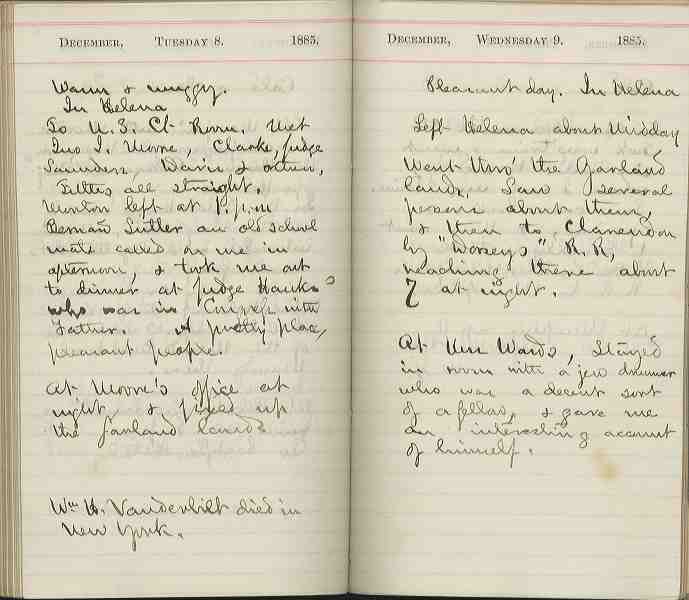 DECEMBER, TUESDAY 8. 1885.
Warm & muggy.
In Helena
To U.S. Ct Room. Met
Jno J. Moore, Clarke, Judge
Saunders & others,
Titles all straight.
left at P.p.m
Sutler an old school
mate called on me in
afternoon, & took me out
to dinner at Judge Hanks
who was in Congress with
Father. A pretty place,
pleasant people.
At Moore's office at
night, & fixed up
the Garland lands
Wm H. Vanderbilt died in
New York.
DECEMBER, WEDNESDAY 9. 1885.
Pleasant day. In Helena
Left Helena about Midday
Went thro' the Garland
lands, Saw several
persons about them,
& then to Clarendon
by "Dorseys" R.R,
reaching there about
7 at night.
At Wards, Stayed
in room with a jew drummer
who was a decent sort
of a fellow, & gave me
an interesting account
of himself.